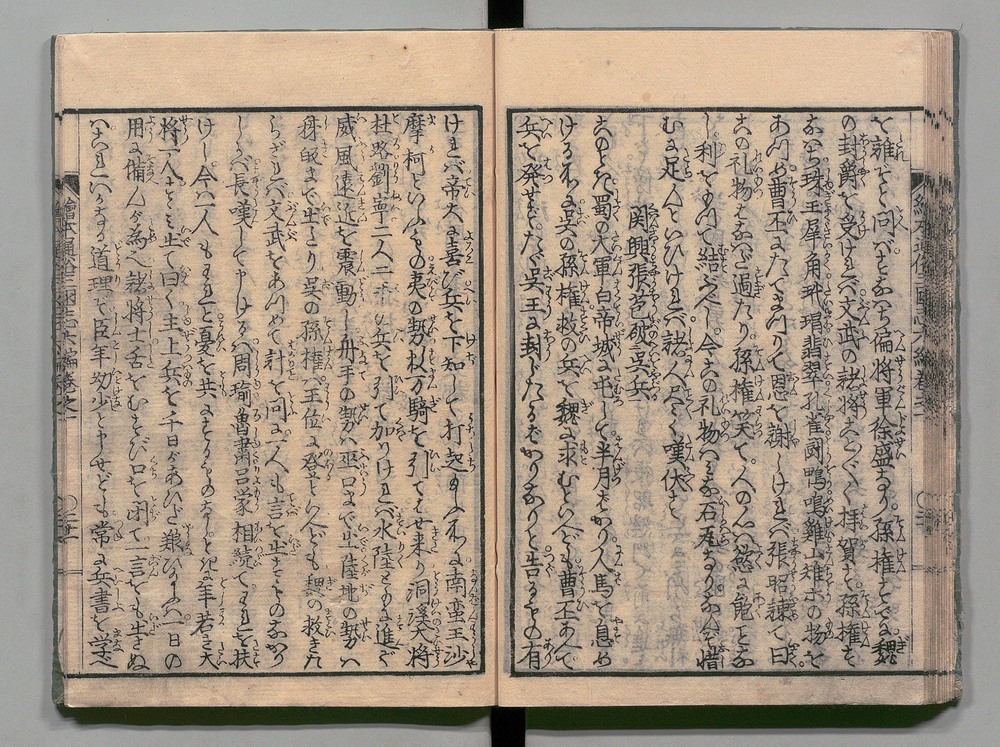 を誰そと問バすなハち偏将軍徐盛なり孫権すでに魏
の封爵を受けれバ文武の諸将ことごとく拝賀す孫権も
すなハち珠玉犀角玳瑁翡翠孔雀闘鴨鳴雞山雉ホの物を
あつめ曹丕にたてまつりて恩を謝しけれバ張昭諫て曰
この礼物ハなハだ過たり孫権笑て人の心ハ慾に飽ことなし
利をもつて結ぶべし今この礼物ハミな石瓦なりなんぞ惜
むに足んといひけれバ諸人ミな嘆伏す
関興張苞破呉兵
このとき蜀の大軍白帝城に屯して半月ばかり人馬を息め
けるに呉の孫権救の兵を魏に求むといへども曹丕あへて
兵を発せずたゞ呉王に封じたるばかりなりと告るもの有
けれバ帝大に喜び兵を下知して打起ゆふに南蛮王沙
摩柯といふもの夷の勢数万騎を引てはせ来り洞溪大将
杜路劉寧二人二手の兵を引て加りけれバ水陸ともに進ぎ
威風遠近を震動し舟手の勢ハ巫口まで出陸地の勢ハ
秭帰まで出たり呉の孫権ハ王位に登るといへども魏の救きた
らざれバ文武をあつめて計を問に一人も言を出すものなかり
しかバ長嘆して申けるハ周瑜魯肅呂蒙相続てわれを扶
けしに今ハ一人もわれと憂を共にするものなしと時に年若き大
将一人すゝミ出て曰く主上兵を千日があひだ養ひ給ふハ一日の
用に備んが為へ諸将士舌をむすび口を閉て一言をも出さぬ
道理ぞ臣年幼少と申せども常に兵書を学べ